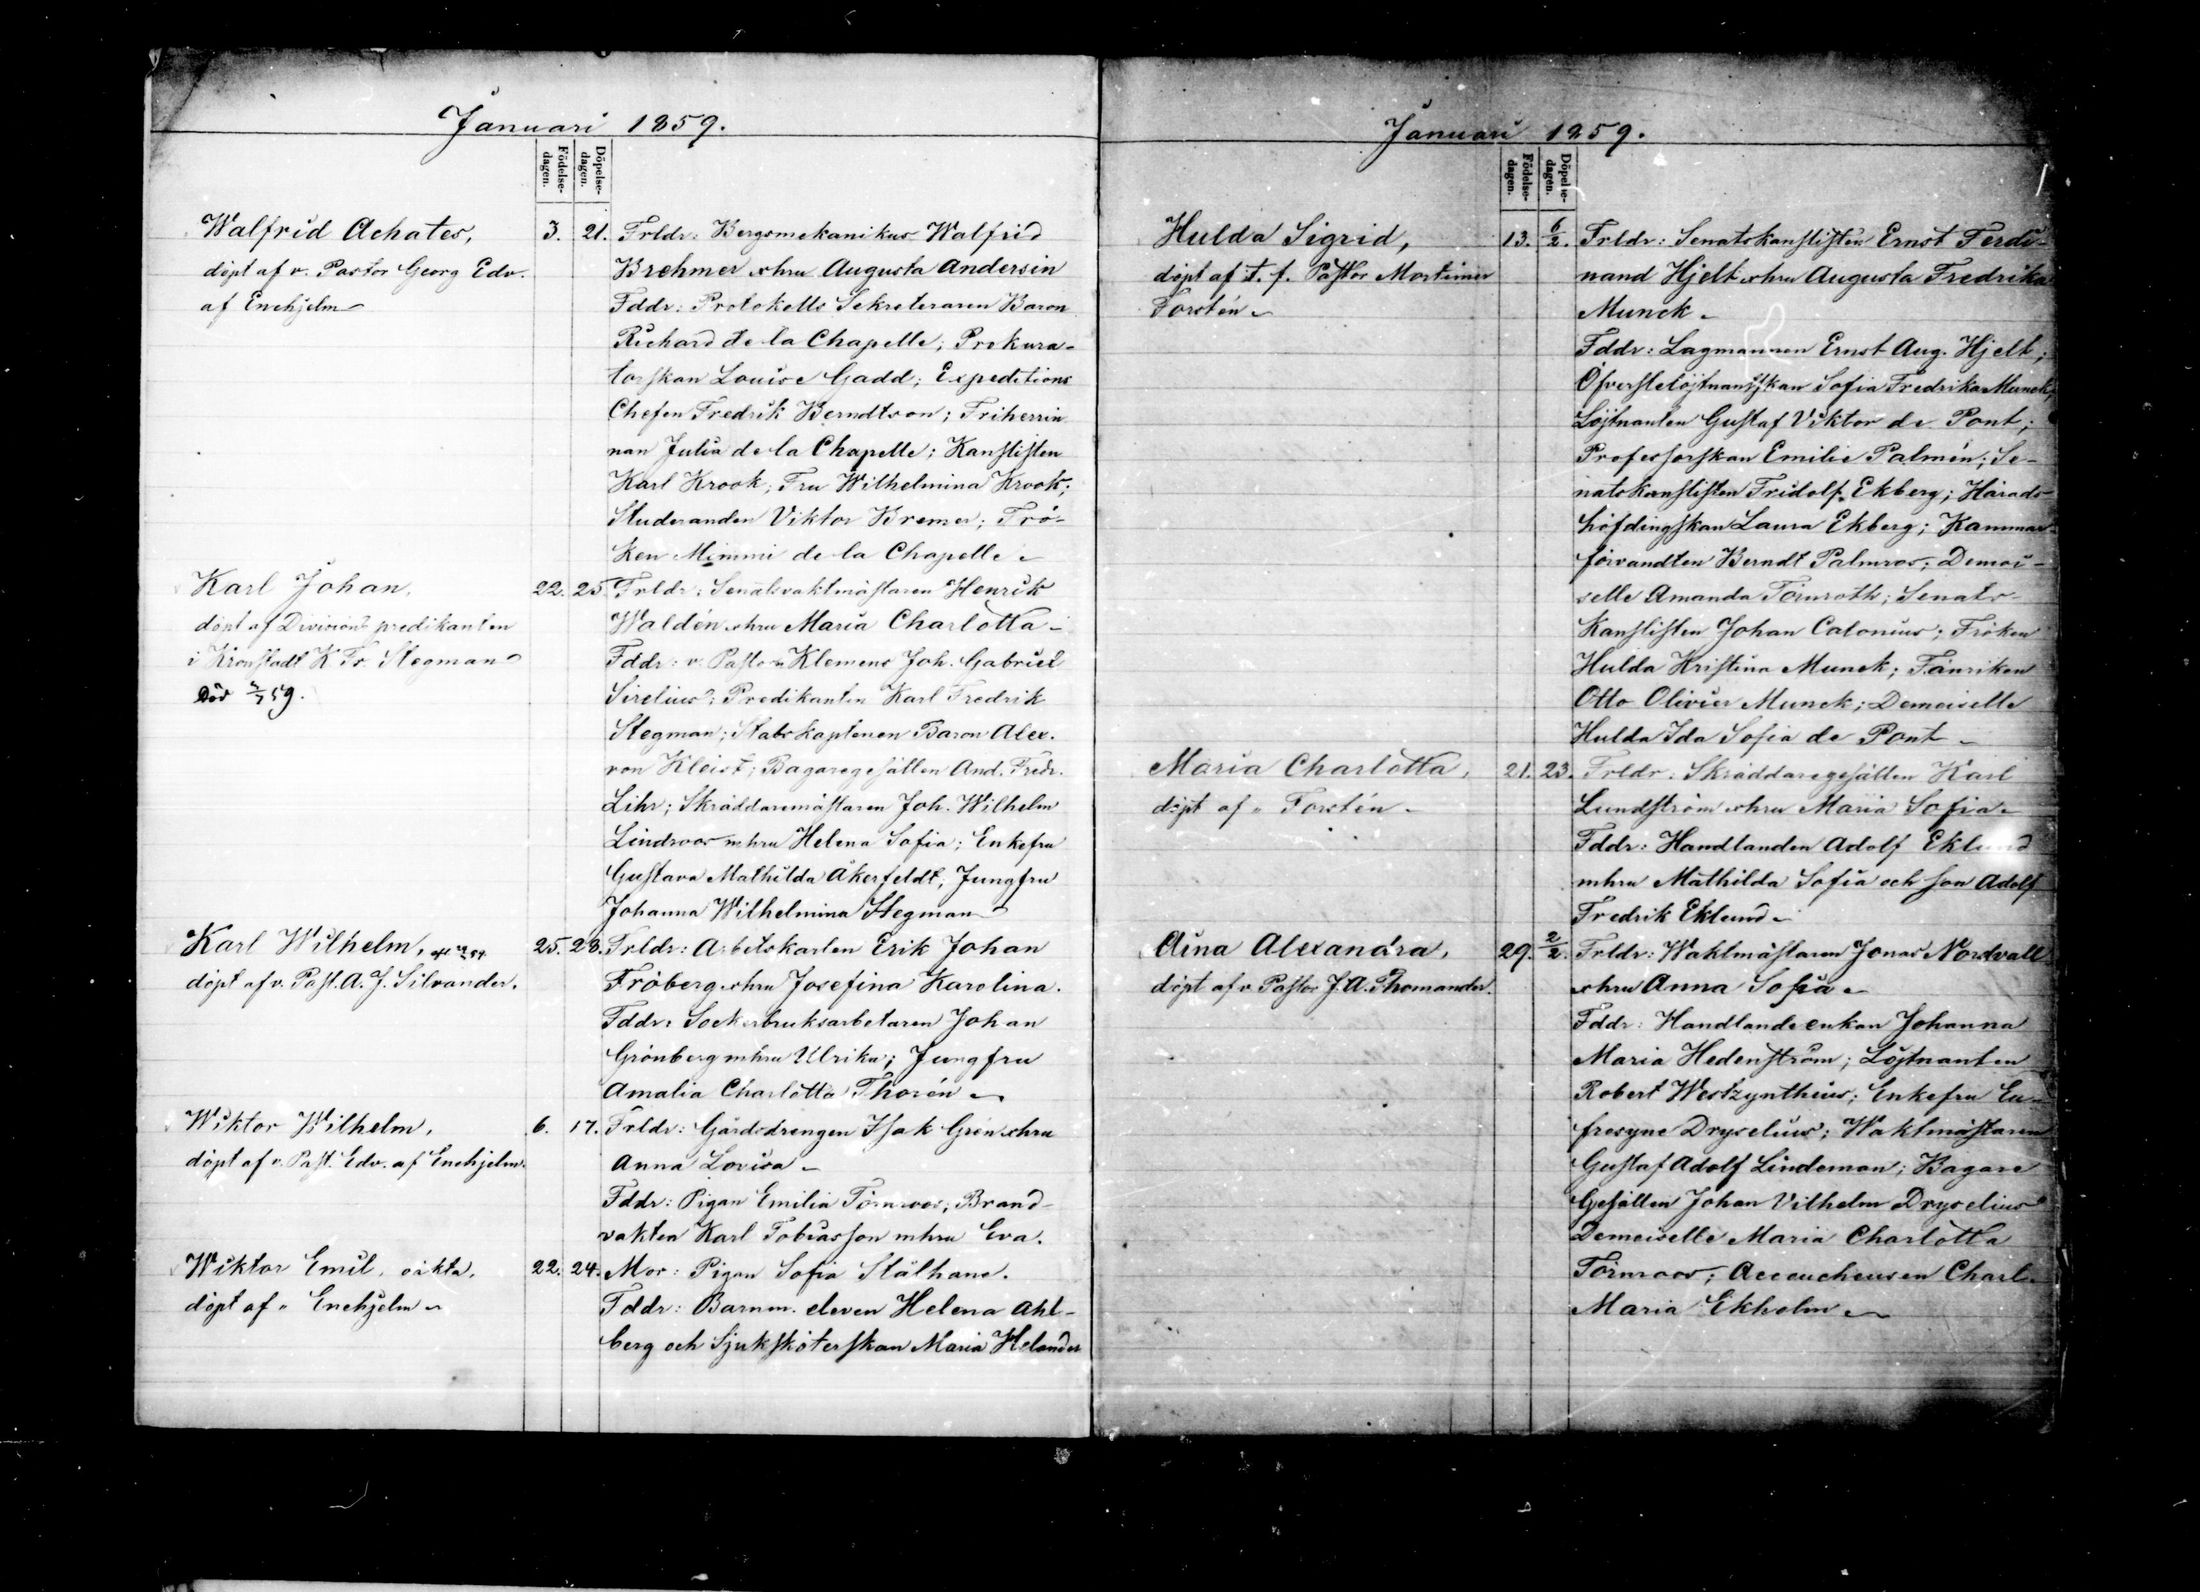 Januari 1859.
Födelse-
dagen.
Döpelse-
dagen.
Walfrid Achates,
döpt af v. Pastor Georg Edv.
af Enehjelm
3. 21.
Frldr: Bergsmekanikus Walfrid
Brehmer ohru Augusta Andersin
Fddr: Protokolls Sekreteraren Baron
Richard de la Chapelle; Prokura-
torskan Louise Gadd; Expeditions
Chefen Fredrik Berndtson; Friherrin
nan Julia de la Chapelle; Kanslisten
Karl Krook; Fru Wilhelmina Krook;
Studeranden Viktor Bremer; Frö-
ken Mimmi de la Chapelle
Karl Johan,
döpt af Divisions predikanten
i Kronstadt K Fr. Stegman
Död 59.
22. 25
Frldr: Senatsvaktmästaren Henrik
Waldén ohru Maria Charlotta
Fddr: v. Pastorn Klemens Joh. Gabriel
Sirelius; Predikanten Karl Fredrik
Stegman; Stabskaptenen Baron Alex.
von Kleist; Bagaregesällen And. Fredr.
Lihr; Skräddaremästaren Joh. Wilhelm
Lindroos mhru Helena Sofia; Enkefru
Gustava Mathilda Åkerfeldt; Jungfru
Johanna Wilhelmina Stegman
Karl Wilhelm,
döpt af v. Past. A. J. Silvander.
25. 28.
Frldr: Arbetskarlen Erik Johan
Fröberg ohru Josefina Karolina.
Fddr: Sockerbruksarbetaren Johan
Grönberg mhru Ulrika; Jungfru
Amalia Charlotta Thorén
Wiktor Wilhelm,
döpt af v. Past. Edv. af Enehjelm.
6. 17.
Frldr: Gårdsdrengen Isak Grön ohru
Anna Lovisa
Fddr: Pigan Emilia Törnroos; Brand-
vakten Karl Tobiasson mhru Eva.
Wiktor Emil, oäkta,
döpt af " Enehjelm
22. 24.
Mor: Pigan Sofia Stålhane.
Fddr: Barnm. eleven Helena Ahl-
berg och Sjukskötérskan Maria Helander
Januari 1859.
Födelse-
dagen.
Döpelse-
dagen.
Hulda Sigrid,
döpt af t. f. Pastor Mortimer
Forstén
13. 6/2.
Frldr: Senatskanslisten Ernst Ferdi-
nand Hjelt ohru Augusta Fredrika
Munck
Fddr: Lagmannen Ernst Aug. Hjelt;
Öfverstelöjtnantskan Sofia Fredrika Munck,
Löjtnanten Gustaf Viktor de Pont;
Professorskan Emilie Palmén; Se-
natskanslisten Fridolf Ekberg; Härads-
höfdingskan Laura Ekberg; Kammar-
förvandten Berndt Palmros; Demoi-
selle Amanda Törnroth; Senats-
Kanslisten Johan Calonius; Fröken
Hulda Kristina Munck; Fänriken
Otto Olivier Munck; Demoiselle
Hulda Ida Sofia de Pont
Maria Charlotta,
döpt af " Forstén
21. 23.
Frldr: Skräddaregesällen Karl
Lundström ohru Maria Sofia
Fddr: Handlanden Adolf Eklund
mhru Mathilda Sofia och son Adolf
Fredrik Eklund
Aina Alexandra,
döpt af v. Pastor J. A. Thomander.
29. 2/2.
Frldr: Waktmästaren Jonas Nordvall
ohru Anna Sofia
Fddr: Handlandeenkan Johanna
Maria Hedenström; Löjtnanten
Robert Westzynthius; Enkefru Eu-
fresyne Dryselius; Waktmästaren
Gustaf Adolf Lindeman; Bagare
Gesällen Johan Vilhelm Dryselius
Demoiselle Maria Charlotta
Törnroos; Accoucheusen Charl.
Maria Ekholm